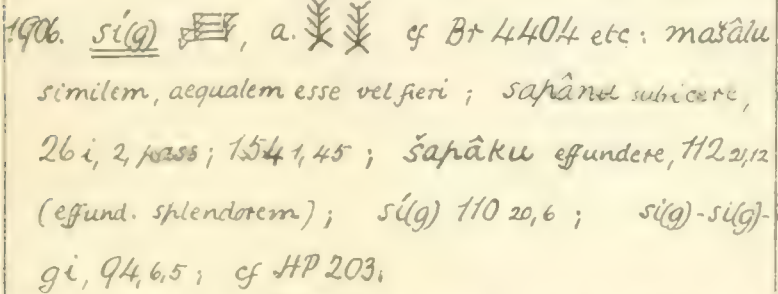 1906. sí(g) , a. cf Br 4404 etc: mašâlu
similem, aequalem esse vel fieri ; sapânu subicere,
26 i, 2, pass ; 154 1, 45 ; šapâku effundere, 112 21,12
(effund. splendorem) ; sí(g) 110 20,6 ; si(g)-si(g)-
gi, 94, 6,5 ; cf HP 203.